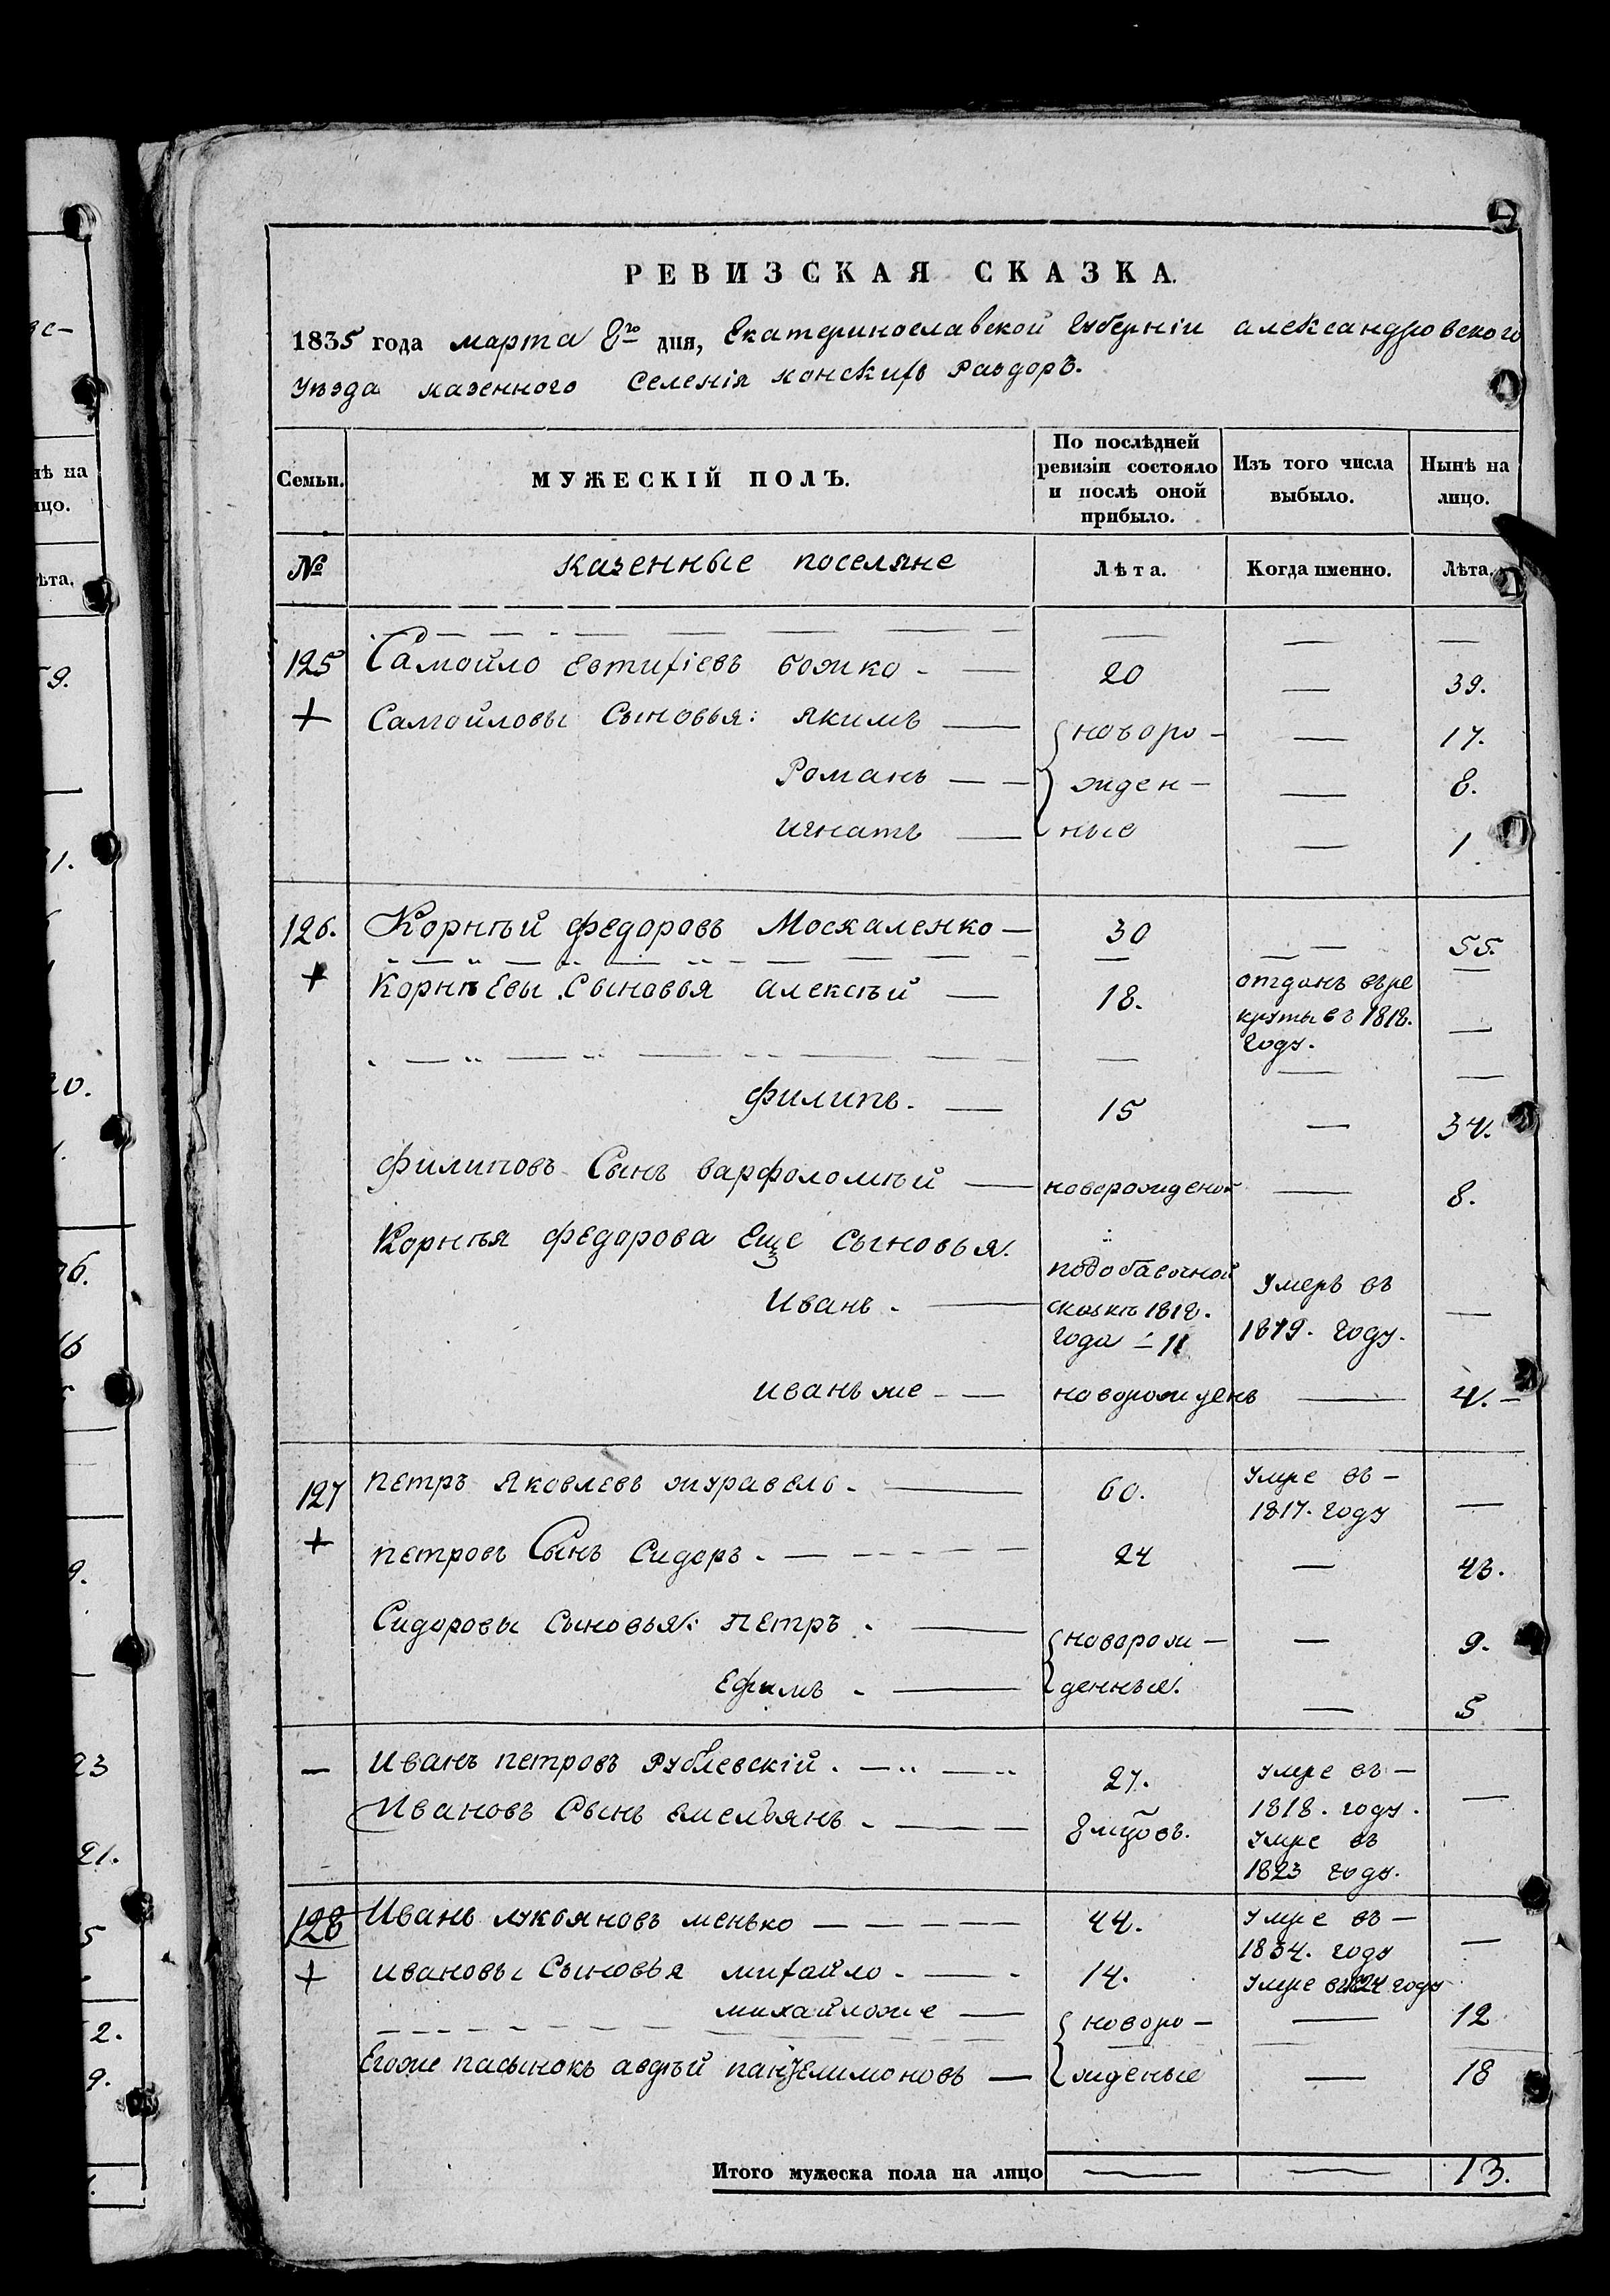 РЕВИЗСКАЯ СКАЗКА.
1835 года марта 8го дня, Екатеринославской Губерніи александровского
уѣзда казенного Селенія конскихъ Раздоръ.
Семьи. МУЖЕСКІЙ ПОЛЪ. По послѣдней ревизіи состояло и послѣ оной прибыло. Изъ того числа выбыло. Нынѣ на лицо.
№ казенные поселяне Лѣта. Когда именно. Лѣта.
125 Самойло Евтихіевъ божко - — 20 — 39.
+ Самойловы Сыновья: якимъ — новоро- — 17.
Романъ — — жден- — 8.
игнатъ — ные — 1.
126. Корнѣй федоровъ Москаленко — 30 — 55.
+ Корнѣевы Сыновья алексѣй — 18. отданъ въ ре
круты въ 1818. —
году.
филипъ. — 15 — 34.
филиповъ Сынъ варфоломѣй — новорожденой — 8.
Корнѣя федорова Еще Сыновья.
Иванъ. — подобавочной сказкѣ 1818. года – 11 Умеръ въ 1819. году. —
иванъ же - — новорожденъ — 4. -
127 петръ Яковлевъ журавель. — 60. умре въ — 1817. году —
+ петровъ Сынъ Сидоръ. — 24 — 43.
Сидоровы Сыновья: петръ. — новорож — — 9.
Ефимъ. — денные. — 5
— Иванъ петровъ Рублевскій. — 27. умре въ — 1818. году. —
Ивановъ Сынъ емельянъ. — 8 мцовъ. умре въ 1823 году.
128 Иванъ лукьяновъ менько — — — — 44. умре въ — 1834. году —
+ ивановы Сыновья михайло. — 14. умре въ 1824 году
михайложе — новоро — — 12
Егоже пасынокъ авдѣй пантелимоновъ — жденые — 18
Итого мужеска пола на лицо — — 13.